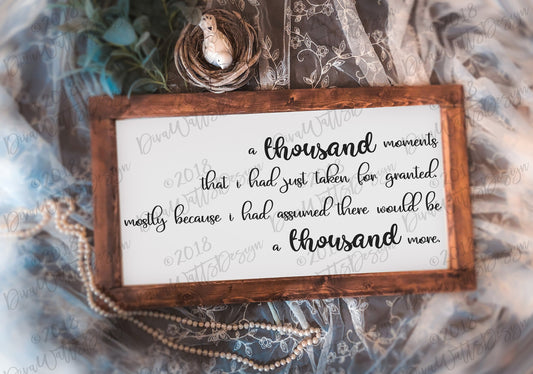 a thousand moments
that i had just taken for granted.
mostly because i had assumed there would be
a thousand more.
©2018
DivaWattsDesign